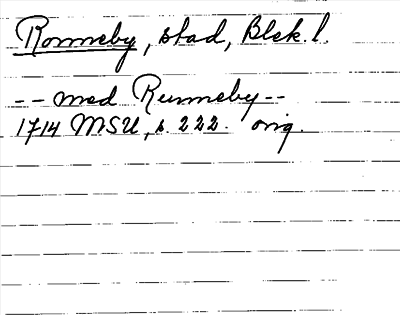 Ronneby, stad, Blek. l.
-- med Runneby --
1714 MSU, s. 222. orig.